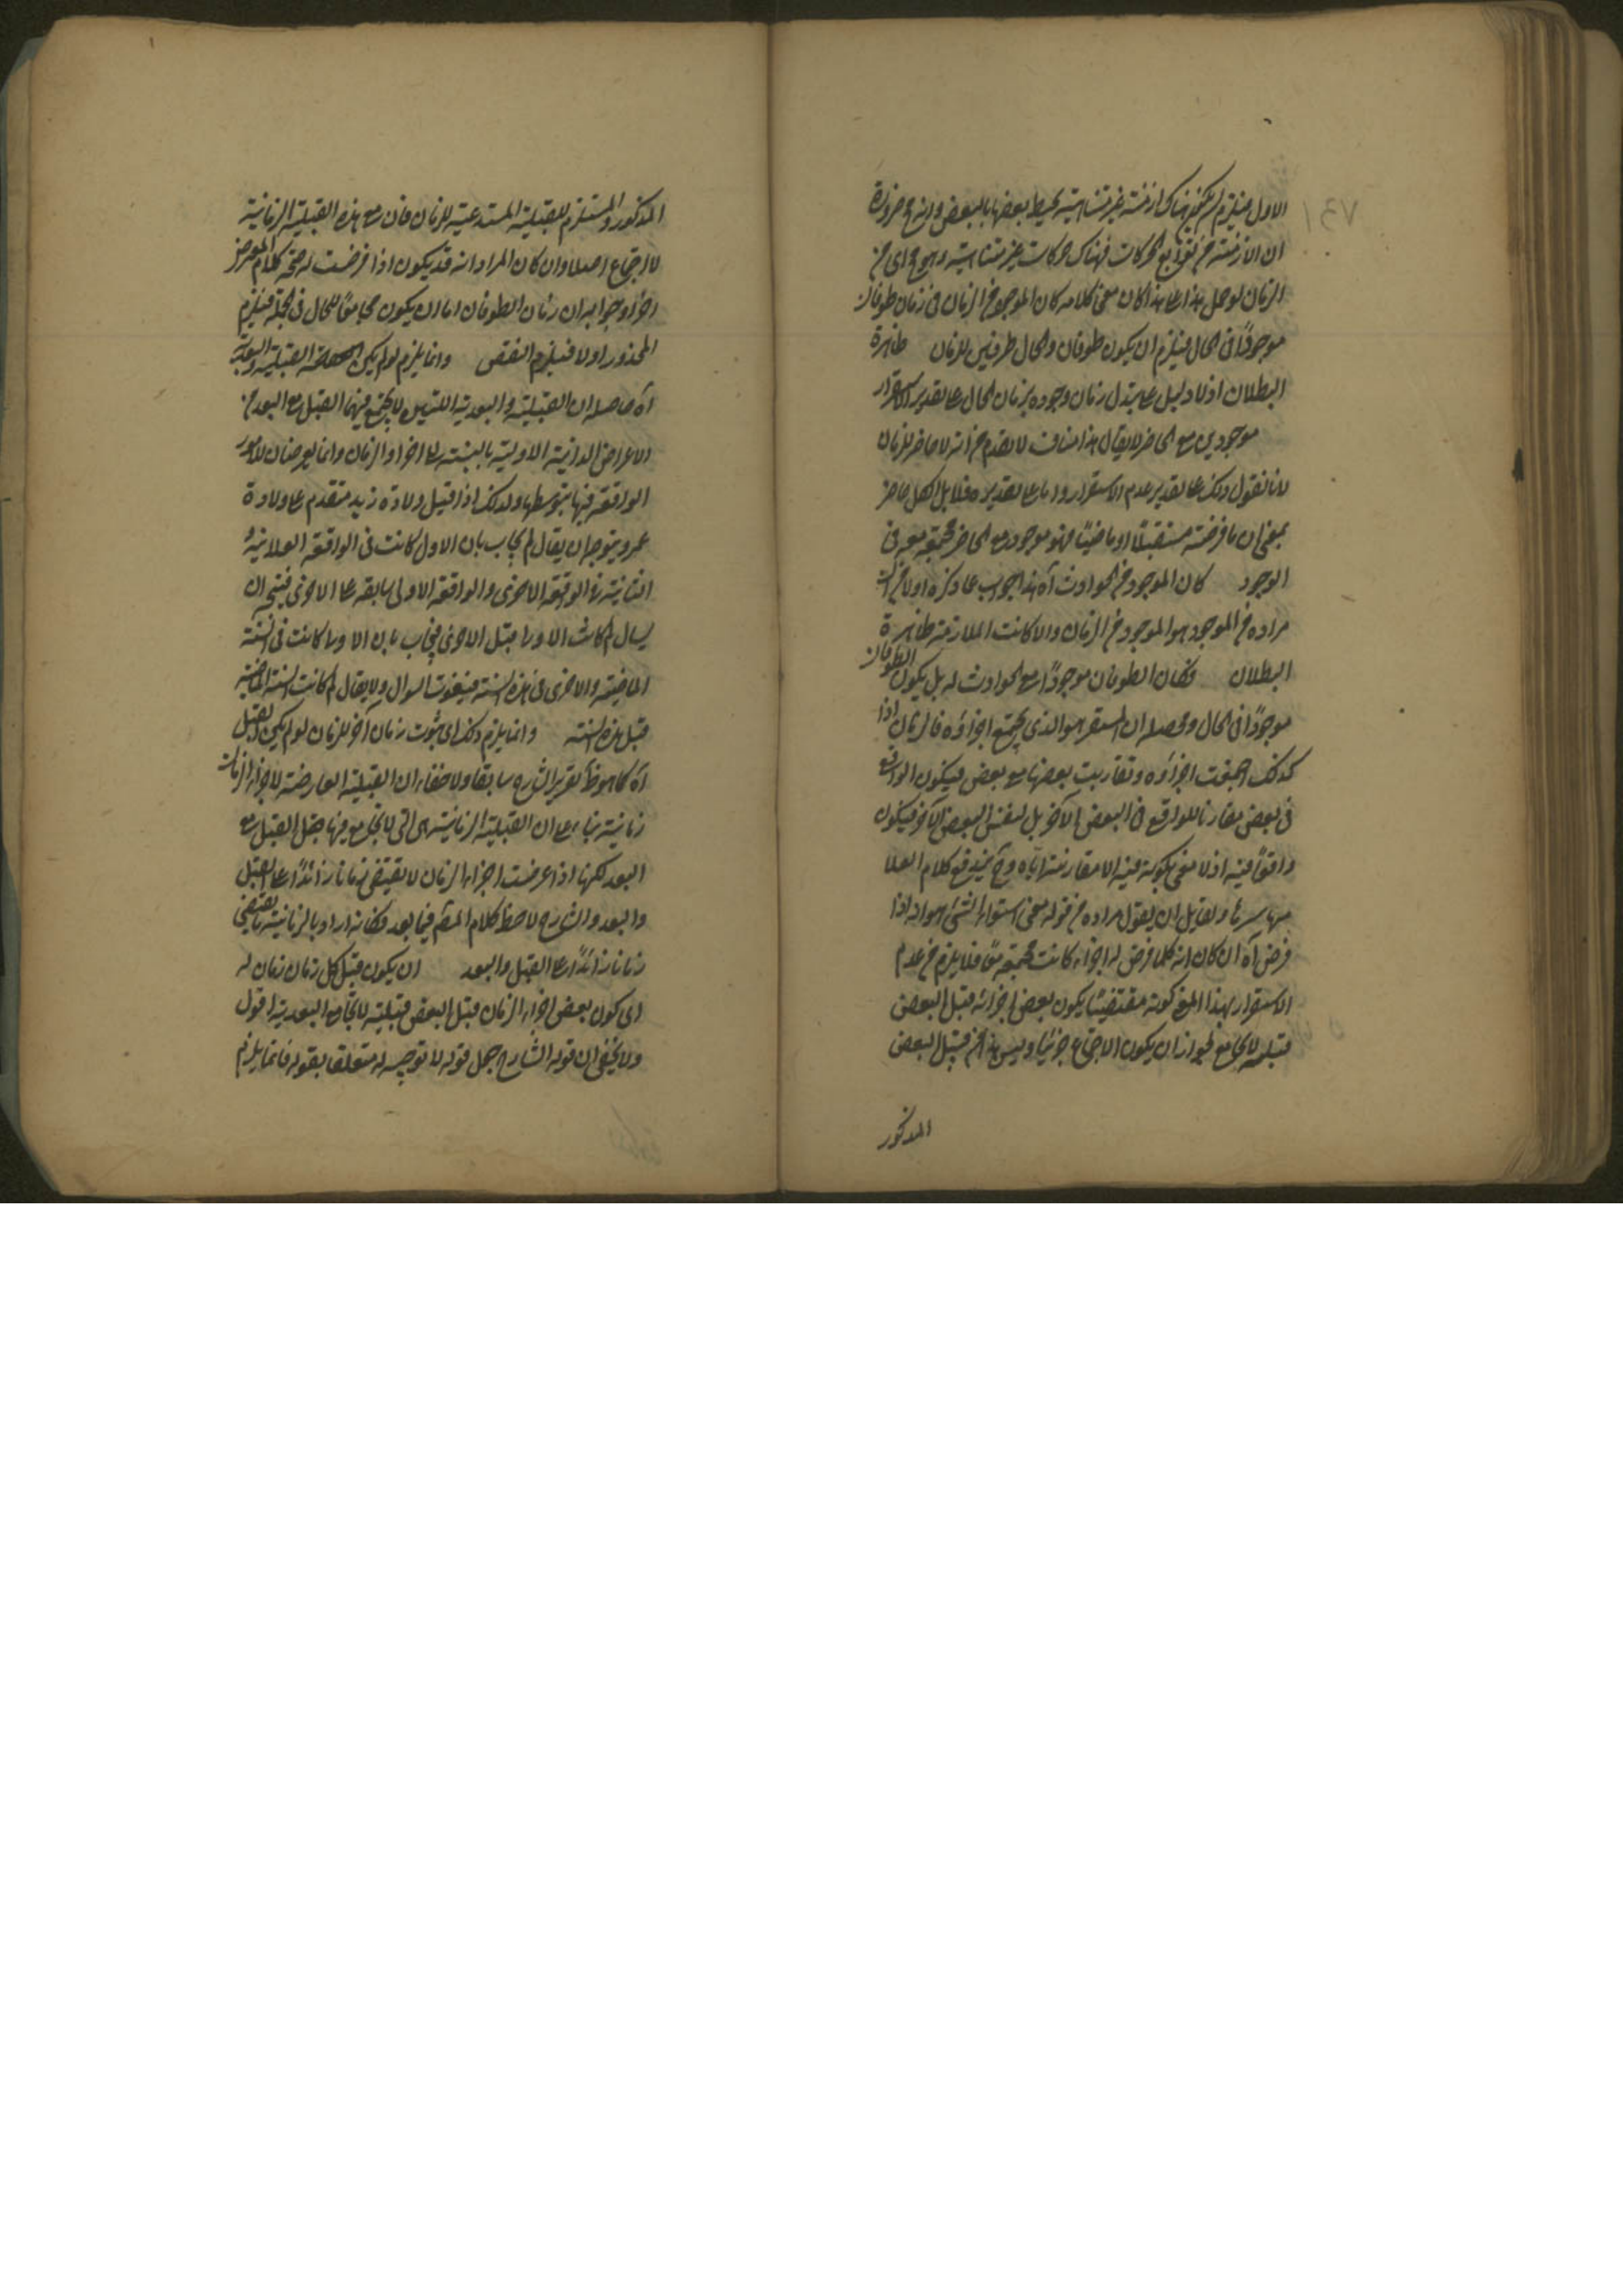 الاول فيلزم ان يكون هناك ازمنة غير متناهية يحيط بعضها بالبعض وانه مع ضرورة
ان الازمنة من توابع الحركات فهناك حركات غير متناهية وهو مح اى من
الزمان لو حمل هذا على هذا كان معنى كلامه كان الموجود من الزمان فى زمان طوفان
موجودًا فى الحال فيلزم ان يكون طوفان والحال ظرفين للزمان ظاهرة
البطلان اذ لا دليل على تبدل زمان وجوده بزمان الحال على تقدير الاستقرار
موجودين مع الحاضر لا يقال هذا مناف لما تقدم من انه لا حاضر للزمان
لانا نقول ذلك على تقدير عدم الاستقرار واما على تقديره فلا بل الكل حاضر
بمعنى ان ما فرضته مستقبلًا او ماضيًا فهو موجود مع الحاضر مجتمعة معه فى
الوجود كان الموجود من الحوادث آه هذا جواب عما ذكره اولا من ان
مراده من الموجود هو الموجود من الزمان والا كانت الملازمة ظاهرة
البطلان فكان الطوفان موجودًا مع الحوادث له بل يكون الطوفان
موجودًا فى الحال ومحصله ان المستقر هو الذى يجتمع اجزاؤه فالزمان اذا
كذلك اجتمعت اجزاؤه وتقاربت بعضها مع بعض فيكون الواقع
فى بعض مقارنا للواقع فى البعض الآخر بل لنفس البعض الآخر فيكون
واقعًا فيه اذ لا معنى لكونه فيه الا مقارنته اياه وح يندفع كلام العلا
مهاسرنا ولقايل ان يقول مراده من قوله معنى استقرار الشئ هو انه اذا
فرض آه ان كان انه كلما فرض له اجزاء كانت مجتمعة معًا فلا يلزم من عدم
الاستقرار بهذا المعنى كونه مقتضيًا يكون بعض اجزائه قبل البعض
قبلية لا تجامع لجواز ان يكون الاجتماع جزئيا وليس هذا من قبيل البعض
المذكور
المذكور المستلزم للقبلية المستدعية للزمان فان مع هذه القبلية الزمانية
لا اجتماع اصلا وان كان المراد انه قد يكون اذا فرضت له صح كلام المعترض
اجزاء وجوابه ان زمان الطوفان اما ان يكون مجامعًا للحال فى الجملة فيلزم
المحذور او لا فيلزم النقض وانما يلزم لو لم يكن القبلية والبعدية
آه حاصله ان القبلية والبعدية اللتين لا يجتمع فيهما القبل مع البعد من
الاعراض الذاتية الاولية بالنسبة الى اجزاء الزمان وانما يعرضان للامور
الواقعة فيها بتوسطها ولذلك اذا قيل ولادة زيد متقدم على ولادة
عمرو يتوجه ان يقال لم يجاب بان الاول كانت فى الواقعة الفلانية و
الثانية فى الواقعة الاخرى والواقعة الاولى سابقة على الاخرى فيتجه ان
يسال لم كانت الاولى قبل الاخرى فيجاب بان الاولى كانت فى السنة
الماضية والاخرى فى هذه السنة فينقطع السوال ولا يقال لم كانت السنة الماضية
قبل هذه السنة وانما يلزم ذلك اى ثبوت زمان آخر للزمان لو لم يكن القبل
آه كما هو ظ تقرير الشرح سابقا ولا خفاء ان القبلية العارضة لاجزاء الزمان
زمانية بناء على ان القبلية الزمانية هى التى لا يجامع فيها القبل مع
البعد لكنها اذا عرضت اجزاء الزمان لا تقتضى زمانا زائدًا على القبل
والبعد والشارح لاحظ كلام المص فيما بعد فكانه اراد بالزمانية ما يقتضى
زمانا زائدًا على القبل والبعد ان يكون قبل كل زمان زمان له
اى كون بعض اجزاء الزمان قبل البعض قبلية لا تجامع البعدية اقول
ولا يخفى ان قوله الشارح جعل قوله لا توجيه له متعلقا بقوله فانما يلزم